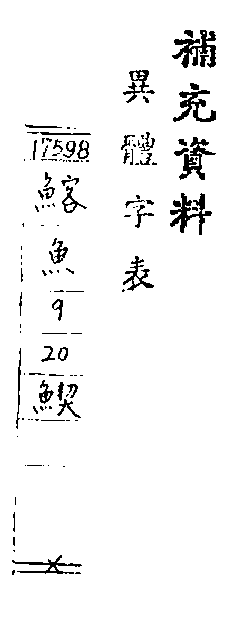 補充資料
異體字表
17598
䱍
魚
9
20
䱀
X